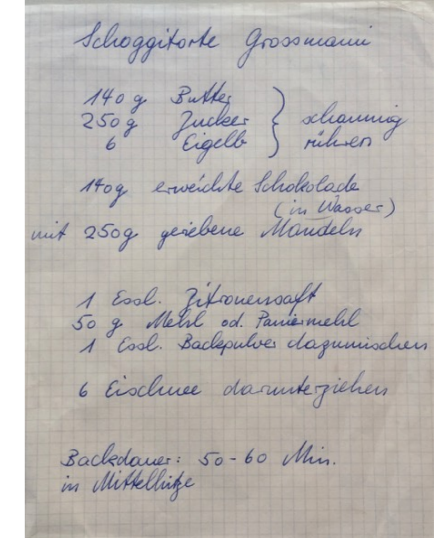 Schoggitorte Grossmami
140g Butter
250g Zucker } schaumig
6 Eigelb rühren
140g erweichte Schokolade
(in Wasser)
mit 250g geriebene Mandeln
1 Essl. Zitronensaft
50 g Mehl od. Paniermehl
1 Essl. Backpulver dazumischen
6 Eischnee darunterziehen
Backdauer: 50-60 Min.
in Mittelhitze